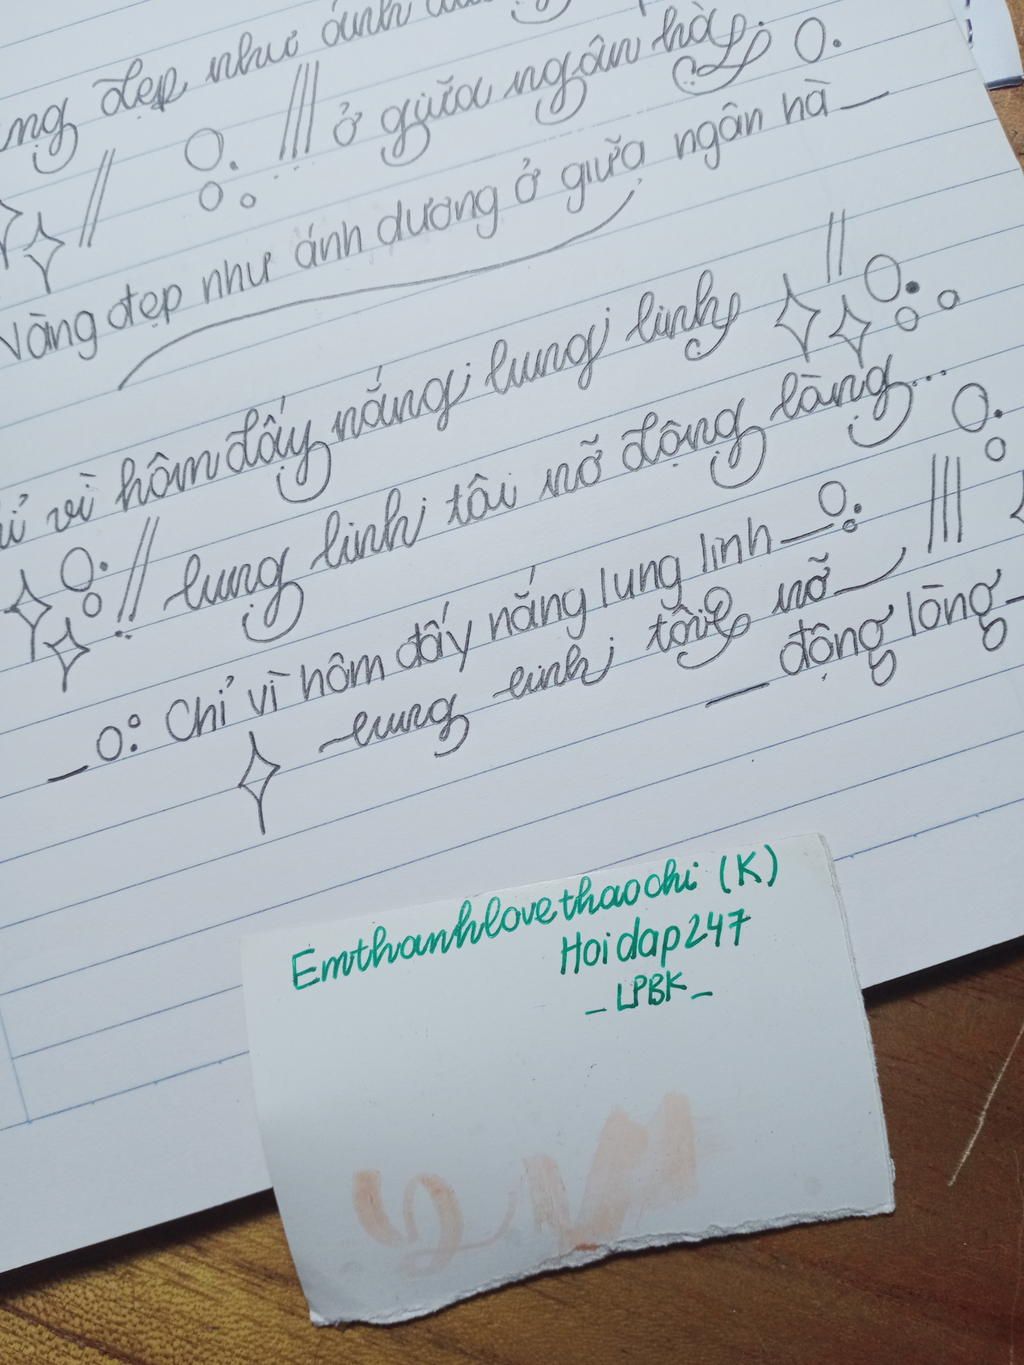 đẹp như ánh
ở giữa ngân hà
Nàng đẹp như ánh dương ở giữa ngân hà
vì hôm đấy nắng lung linh
lung linh tôi nỡ động lòng...
Chỉ vì hôm đấy nắng lung linh
lung linh tôi nỡ
động lòng
Emthanhlovethaochi (K)
Hoidap247
_LPBK_